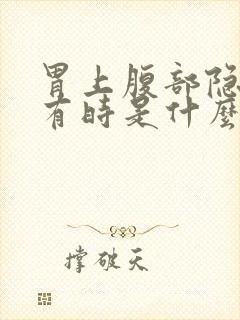 胃上腹部隐
有时是什么
撑破天